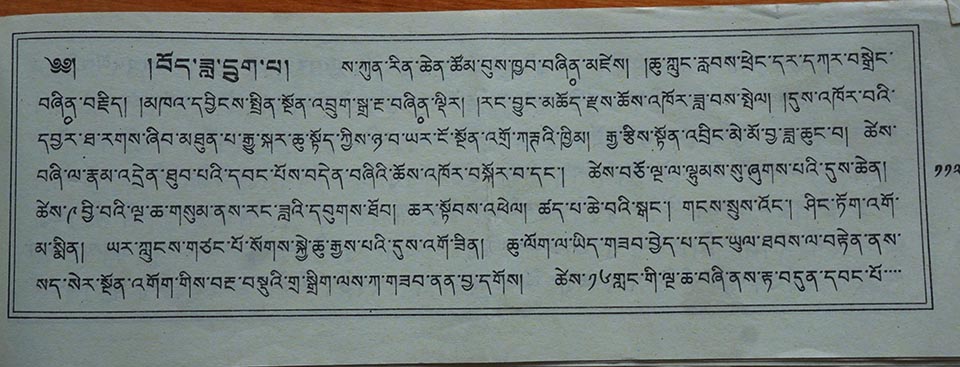 ༄༅། བོད་ཟླ་དྲུག་པ། ས་ཀུན་རིན་ཆེན་ཚོམ་བུས་ཁྱབ་བཞིནྟུ་མཛེས། །ཆུ་ཀླུང་རླབས་ཕྲེང་དར་དཀར་བསྒྲེང་
བཞིནྟུ་བརྗིད། །མཁའ་དབྱིངས་སྤྲིན་སྔོན་འབྲུག་སྒྲ་རྔ་བཞིནྟུ་ལྡིར། །རང་བྱུང་མཆོད་རྫས་ཆོས་འཁོར་ཟླ་བས་སྤེལ། །དུས་འཁོར་བའི་
དབྱར་ཐ་རགས་ཞིབ་མཐུན་པ་རྒྱུ་སྐར་ཆུ་སྟོད་ཀྱིས་ཉ་བ་ཡར་ངོ་སྔོན་འགྲོ་ཀརྐའི་ཁྱིམ། རྒྱ་རྩིས་སྟོན་འབྲིང་མེ་མོ་བྱ་ཟླ་ཆུང་བ། ཚེས་
བཞི་ལ་རྣམ་འདྲེན་ཐུབ་པའི་དབང་པོས་བདེན་བཞིའི་ཆོས་འཁོར་བསྐོར་བ་དང་། ཚེས་བཅོ་ལྔ་ལ་ལྷུམས་སུ་ཞུགས་པའི་དུས་ཆེན།
ཚེས་༩ བྱི་བའི་ལྔ་ཆ་གསུམ་ནས་རང་ཟླའི་དབུགས་ཐོབ། ཆར་སྟོབས་འཕེལ། ཚད་པ་ཆེ་བའི་སྒང་། གངས་སྲུས་འོང་། ཤིང་ཏོག་འགོ་
མ་སྨིན། ཡར་ཀླུངས་གཙང་པོ་སོགས་སྐྱེ་ཆུ་རྒྱས་པའི་དུས་འགོ་ཟིན། ཆུ་ལོག་ལ་ཡིད་གཟབ་བྱེད་པ་དང་ཡུལ་ཐབས་ལ་བརྟེན་ནས་
སད་སེར་སྔོན་འགོག་གིས་བརྔ་བསྡུའི་གྲ་སྒྲིག་ལས་ཀ་གཟབ་ནན་བྱ་དགོས། ཚེས་༡༦གླང་གི་ལྔ་ཆ་བཞི་ནས་རྟ་བདུན་དབང་པོ་····
༡༡༢